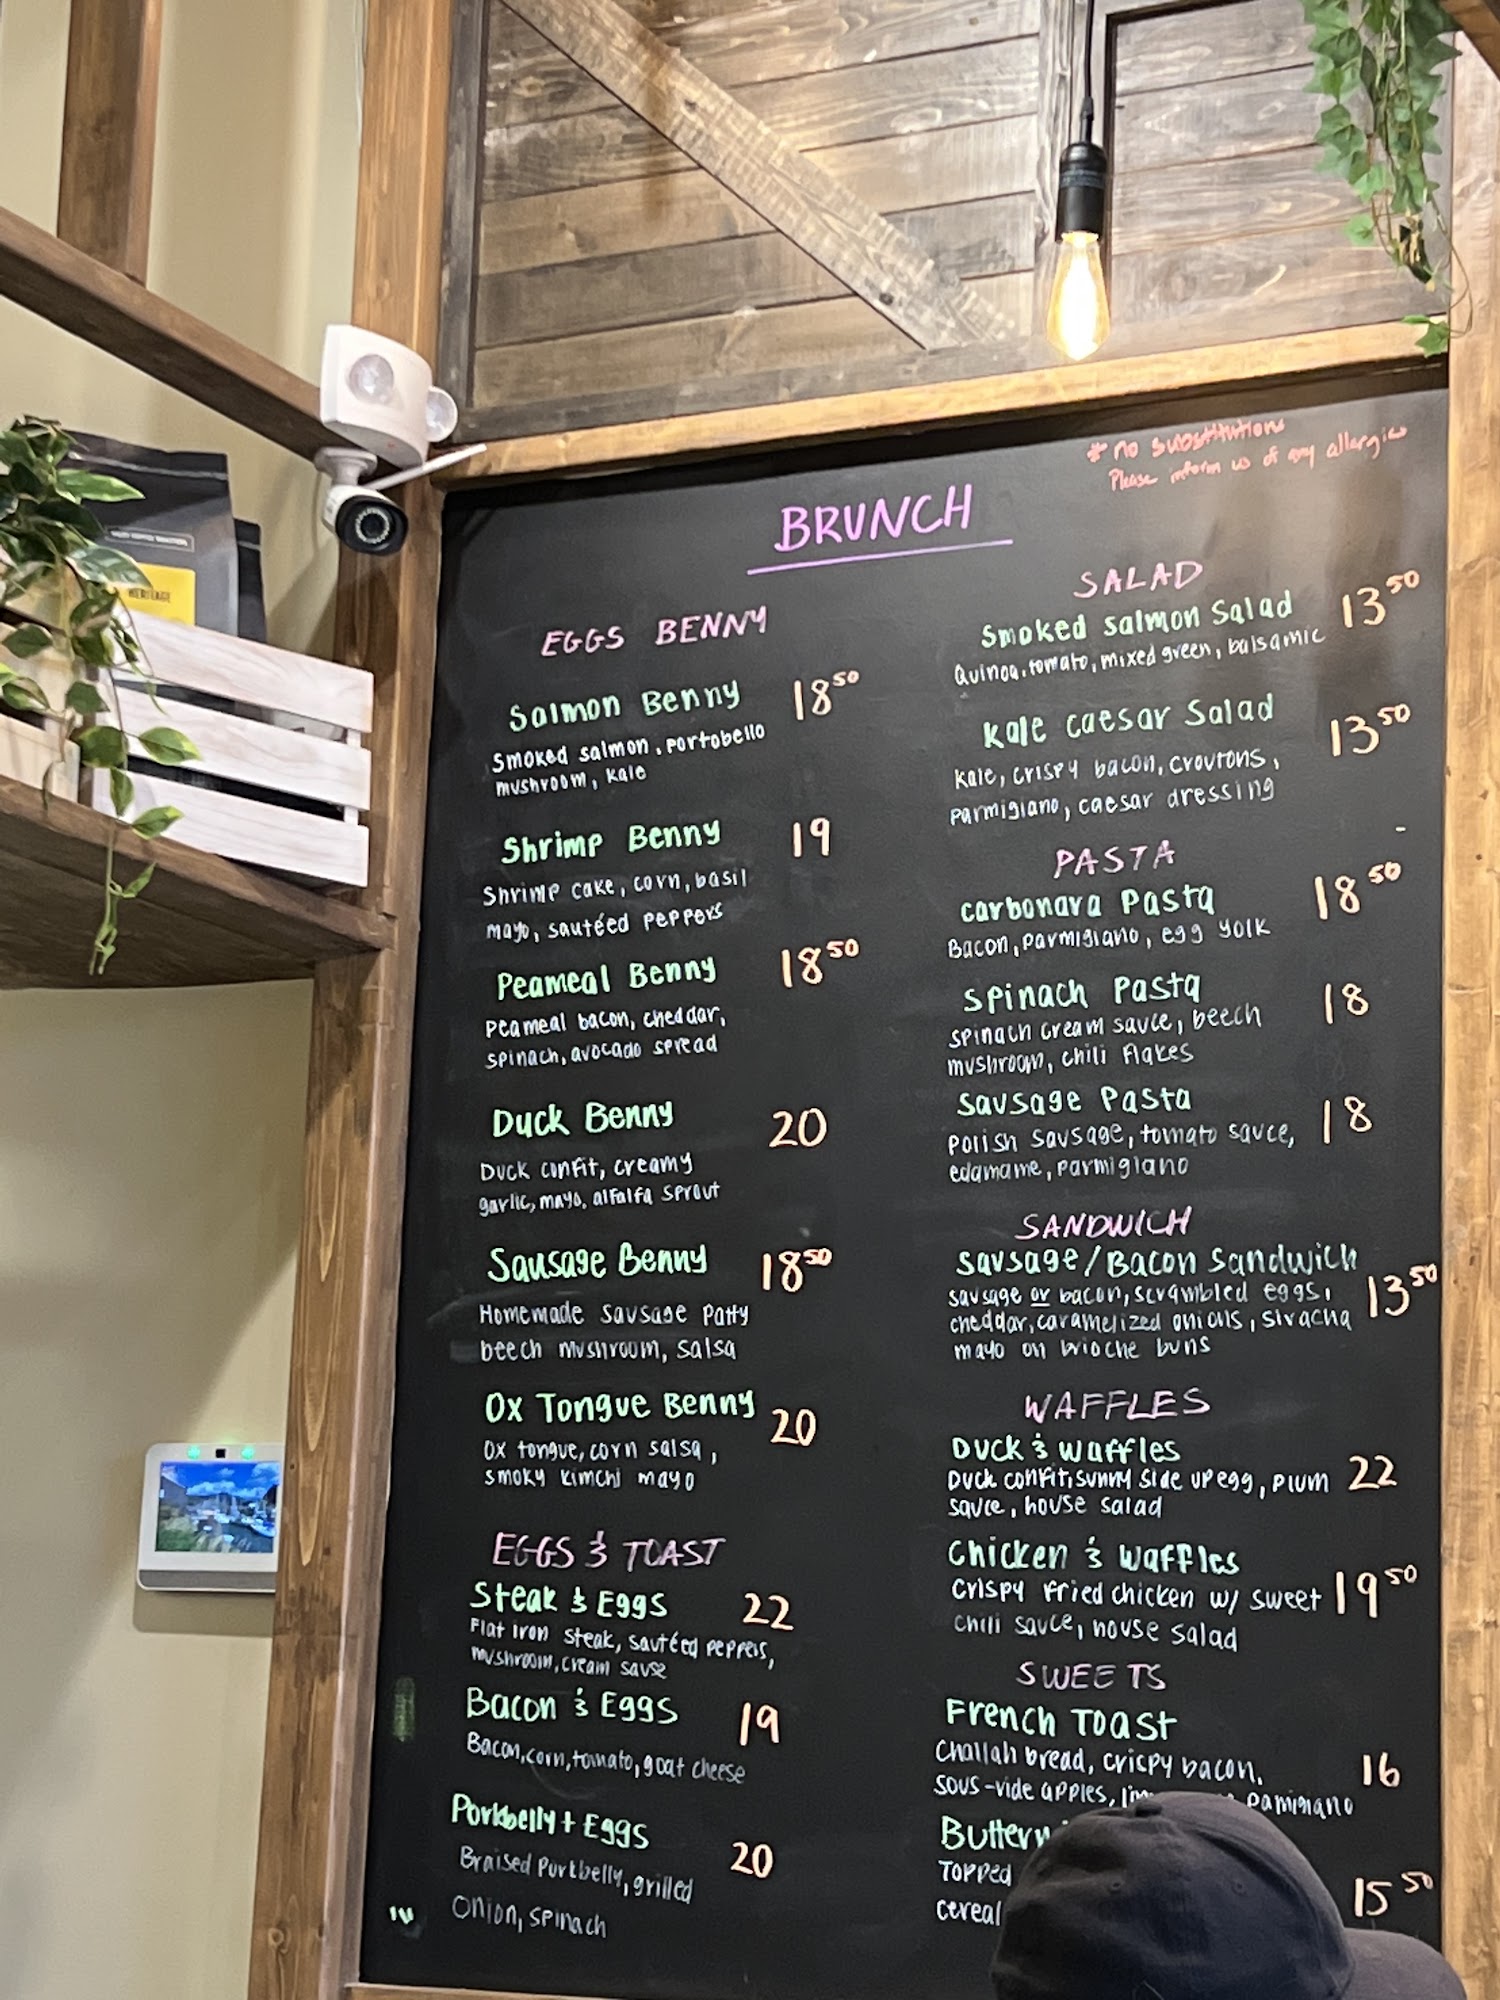 HERITAGE
* no substitutions
Please inform us of any allergies
BRUNCH
EGGS BENNY
Salmon Benny 18⁵⁰
Smoked salmon, portobello
mushroom, kale
Shrimp Benny 19
Shrimp cake, corn, basil
mayo, sautéed peppers
Peameal Benny 18⁵⁰
Peameal bacon, cheddar,
spinach, avocado spread
Duck Benny 20
Duck confit, creamy
garlic, mayo, alfalfa sprout
Sausage Benny 18⁵⁰
Homemade sausage patty
beech mushroom, salsa
Ox Tongue Benny 20
Ox tongue, corn salsa,
smoky kimchi mayo
EGGS & TOAST
Steak & Eggs 22
Flat iron steak, sautéed peppers,
mushroom, cream sause
Bacon & Eggs 19
Bacon, corn, tomato, goat cheese
Porkbelly + Eggs 20
Braised Porkbelly, grilled
Onion, spinach
SALAD
Smoked salmon Salad 13⁵⁰
Quinoa, tomato, mixed green, balsamic
Kale caesar Salad 13⁵⁰
Kale, crispy bacon, croutons,
parmigiano, caesar dressing
PASTA
carbonara Pasta 18⁵⁰
Bacon, parmigiano, egg yolk
Spinach Pasta 18
spinach cream sauce, beech
mushroom, chili flakes
Sausage Pasta 18
polish sausage, tomato sauce,
edamame, parmigiano
SANDWICH
Sausage/Bacon Sandwich 13⁵⁰
sausage or bacon, scrambled eggs,
cheddar, caramelized onions, siracha
mayo on brioche buns
WAFFLES
Duck & waffles 22
Duck confit, sunny side up egg, plum
sauce, house salad
Chicken & waffles 19⁵⁰
crispy fried chicken w/ sweet
chili sauce, house salad
SWEETS
French Toast 16
Challah bread, crispy bacon,
sous-vide apples, Pamigiano
Topped
cereal 15⁵⁰